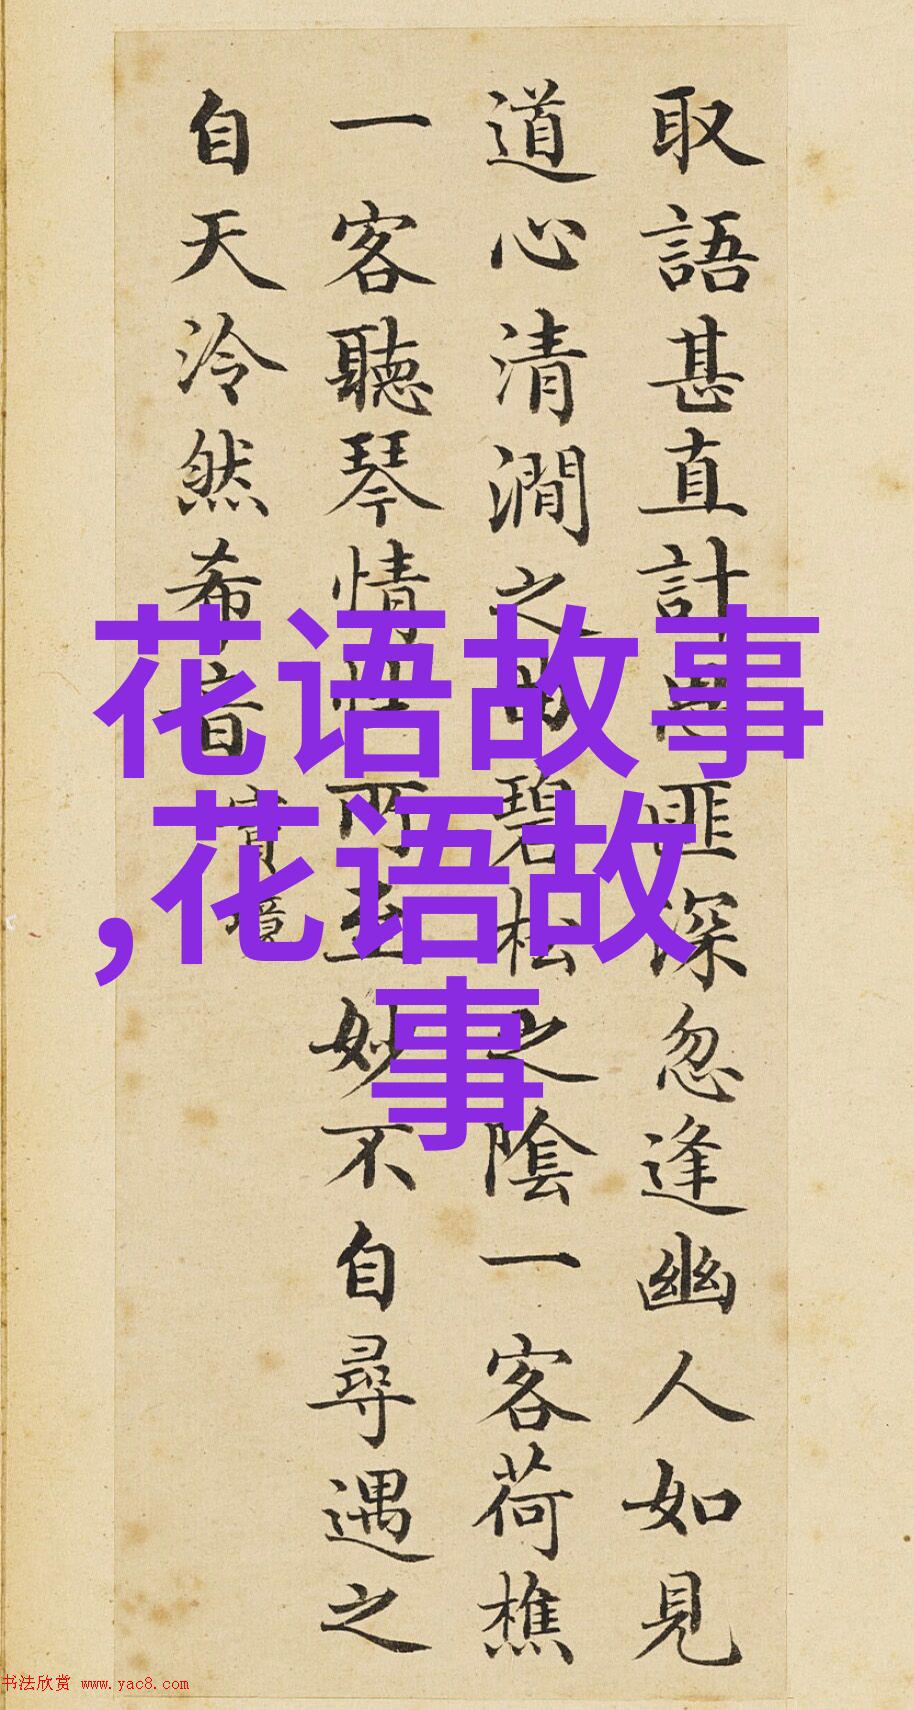 取語甚直計思匪深忽逢幽人如見
道心清澗之曲碧松之陰一客荷樵
一客聽琴情性所至妙不自尋遇之
自天泠然希音 實境
花语故事
,花语故
事
书法欣赏 www.yac8.com